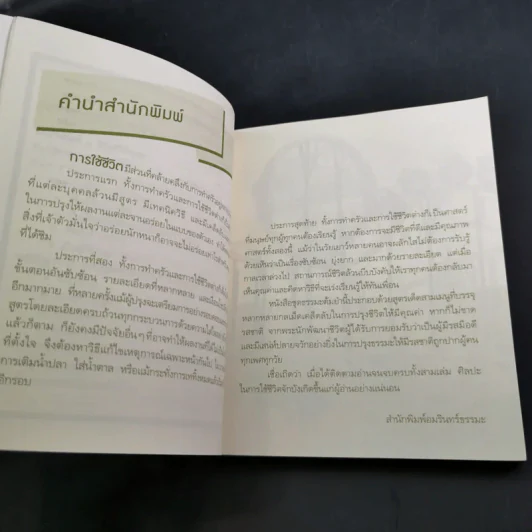 คำนำสำนักพิมพ์
การใช้ชีวิตมีส่วนที่คล้ายคลึงกับการ
ประการแรก ทั้งการทำครัวและการใช้ชีวิต
ที่แต่ละบุคคลล้วนมีสูตร มีเทคนิควิธี
ในการปรุงให้ผลงานแต่ละจานอร่อยในแบบของตัวเอง
สิ่งที่เจ้าตัวมั่นใจว่าอร่อยนักหนาก็อาจจะไม่อร่อย
ที่ได้ชิม
ประการที่สอง ทั้งการทำครัวและการใช้ชีวิต
ขั้นตอนอันซับซ้อน รายละเอียดที่หลากหลาย
อีกมากมาย ที่หลายครั้งแม้ผู้ปรุงจะเตรียมการอย่าง
สูตรโดยละเอียดครบถ้วนทุกกระบวนการด้วยความ
แล้วก็ตาม ก็ยังคงมีปัจจัยอื่นๆ ที่อาจทำให้ผลงาน
ที่ตั้งใจ จึงต้องหาวิธีแก้ไขเหตุการณ์เฉพาะหน้ากันไป
การเติมน้ำปลา ใส่น้ำตาล หรือแม้กระทั่งการ
อีกรอบ
ประการสุดท้าย ทั้งการทำครัวและการใช้ชีวิตต่างก็เป็นศาสตร์
ที่มนุษย์ทุกผู้ทุกคนต้องเรียนรู้ หากต้องการจะมีชีวิตที่ดีและมีคุณภาพ
ศาสตร์ทั้งสองนี้ แม้ว่าในวัยเยาว์หลายคนอาจหลีกใส่ไม่ต้องการรับรู้
ด้วยเห็นว่าเป็นเรื่องซับซ้อน ยุ่งยาก และมากด้วยรายละเอียด แต่เมื่อ
กาลเวลาล่วงไป สถานการณ์ชีวิตล้วนบีบบังคับให้เราทุกคนต้องกลับมา
เห็นคุณค่าและคิดหาวิธีที่จะเร่งเรียนรู้ให้ทันเพื่อน
หนังสือชุดธรรมะต้มยำนี้ประกอบด้วยสูตรเด็ดสามเมนูที่บรรจุ
หลากหลายกลเม็ดเคล็ดลับในการปรุงชีวิตให้มีคุณค่า หากก็ไม่ขาด
รสชาติ จากพระนักพัฒนาชีวิตผู้ได้รับการยอมรับว่าเป็นผู้มีรสมือดี
และมีเสน่ห์ปลายจวักอย่างยิ่งในการปรุงธรรมะให้มีรสชาติถูกปากผู้คน
ทุกเพศทุกวัย
เชื่อเถิดว่า เมื่อได้ติดตามอ่านจนจบครบทั้งสามเล่ม ศิลปะ
ในการใช้ชีวิตจักบังเกิดขึ้นแก่ผู้อ่านอย่างแน่นอน
สำนักพิมพ์อมรินทร์ธรรมะ